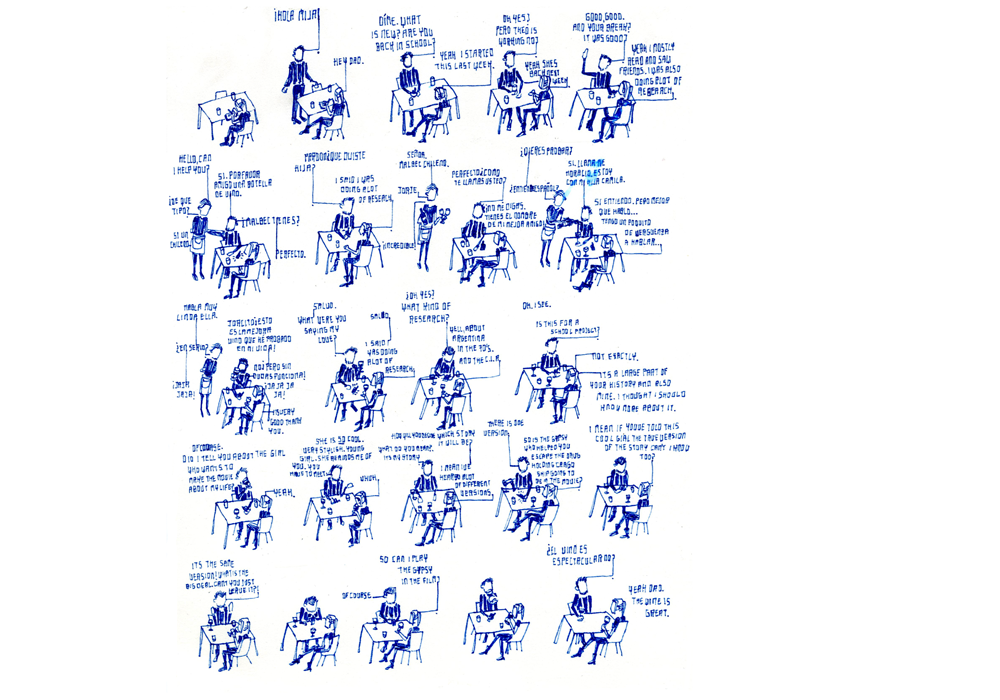 ¡HOLA MIJA!
HEY DAD.
DIME. WHAT
IS NEW? ARE YOU
BACK IN SCHOOL?
YEAH I STARTED
THIS LAST WEEK.
OH YES?
PERO THEO IS
WORKING NO?
YEAH SHES
BACK NEXT
WEEK
GOOD, GOOD.
AND YOUR BREAK?
IT WAS GOOD?
YEAH I MOSTLY
READ AND SAW
FRIENDS. I WAS ALSO
DOING ALOT OF
RESEARCH.
HELLO, CAN
I HELP YOU?
SI. PORFAVOR
AMIGO UNA BOTELLA
DE VINO.
¿DE QUE
TIPO?
¿MALBEC TIENES?
SI UN
CHILENO.
PERFECTO.
PERDON ¿QUE DIJISTE
HIJA?
I SAID I WAS
DOING ALOT
OF RESEARCH.
SEÑOR.
MALBEC CHILENO.
PERFECTO ¿COMO
TE LLAMAS USTED?
JORJE.
¡NO ME DIGAS.
TIENES EL NOMBRE
DE MI MEJOR AMIGO!
¡INCREDIBLE!
¿QUIERES PROBAR?
SI. LLAMA ME
HORACIO. ESTOY
CON MI HIJA CAMILA.
¿ENTIENDE ESPAÑOL?
SI ENTIENDO. PERO MEJOR
QUE HABLO...
TENGO UN POQUITO
DE VERGUENZA
A HABLAR.
HABLA MUY
LINDA ELLA.
JORJITO ¡ESTO
ES LA MEJOR
VINO QUE HE PROBADO
EN MI VIDA!
¿EN SERIO?
NO! PERO SIN
DUDAS FUNCIONA!
JAJA JA
JA!
JAJA
JAJA!
VERY
GOOD THANK
YOU.
SALUD.
WHAT WERE YOU
SAYING MY
LOVE?
SALUD.
I SAID I
WAS DOING
ALOT OF
RESEARCH.
¿OH YES?
WHAT KIND OF
RESEARCH?
WELL, ABOUT
ARGENTINA
IN THE 70'S.
AND THE C.I.A.
OH. I SEE.
IS THIS FOR A
SCHOOL PROJECT?
NOT EXACTLY.
ITS A LARGE PART OF
YOUR HISTORY AND ALSO
MINE. I THOUGHT I SHOULD
KNOW MORE ABOUT IT.
OF COURSE.
DID I TELL YOU ABOUT THE GIRL
WHO WANTS TO
MAKE THE MOVIE
ABOUT MY LIFE?
YEAH.
SHE IS SO COOL.
VERY STYLISH, YOUNG
GIRL. SHE REMINDS ME OF
YOU. YOU
HAVE TO MEET.
WHICH STORY
IT WILL BE?
WHAT DO YOU MEAN?
ITS MY STORY.
I MEAN WE
HEARD ALOT
OF DIFFERENT
VERSIONS.
THERE IS ONE
VERSION.
SO IS THE GYPSY
WHO HELPED YOU
ESCAPE THE DRUG
HOLDING CARGO
SHIP GOING TO
BE IN THE MOVIE?
I MEAN IF YOUVE TOLD THIS
COOL GIRL THE TRUE VERSION
OF THE STORY CANT I KNOW
TOO?
ITS THE SAME
VERSION! WHAT IS THE
BIG DEAL. CAN YOU JUST
LEAVE IT?!
SO CAN I PLAY
THE GYPSY
IN THE FILM?
OF COURSE.
¿EL VINO ES
ESPECTACULAR NO?
YEAH DAD.
THE WINE IS
GREAT.